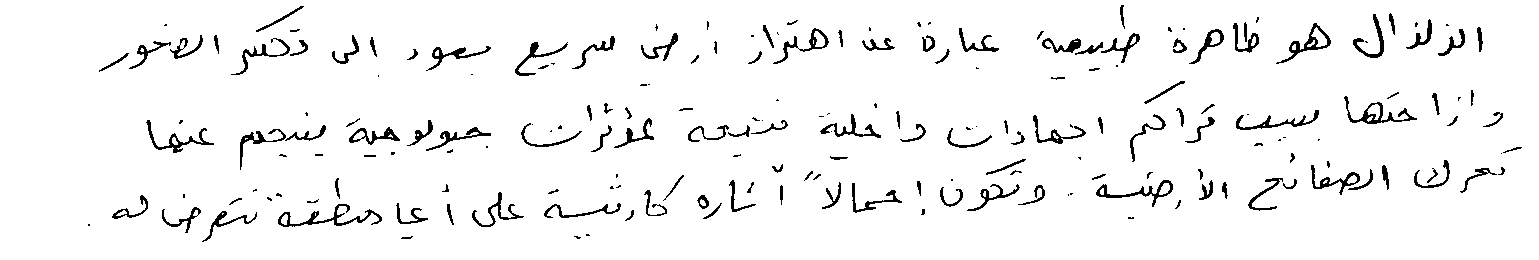 الزلزال هو ظاهرة طبيعية عبارة عن اهتزاز أرضي سريع يعود إلى تكسر الصخور
وإزاحتها بسبب تراكم اجهادات داخلية نتيجة لمؤثرات جيولوجية ينجم عنها
تحرك الصفائح الأرضية. وتكون إجمالاً آثاره كارثية على أيما منطقة تتعرض له.